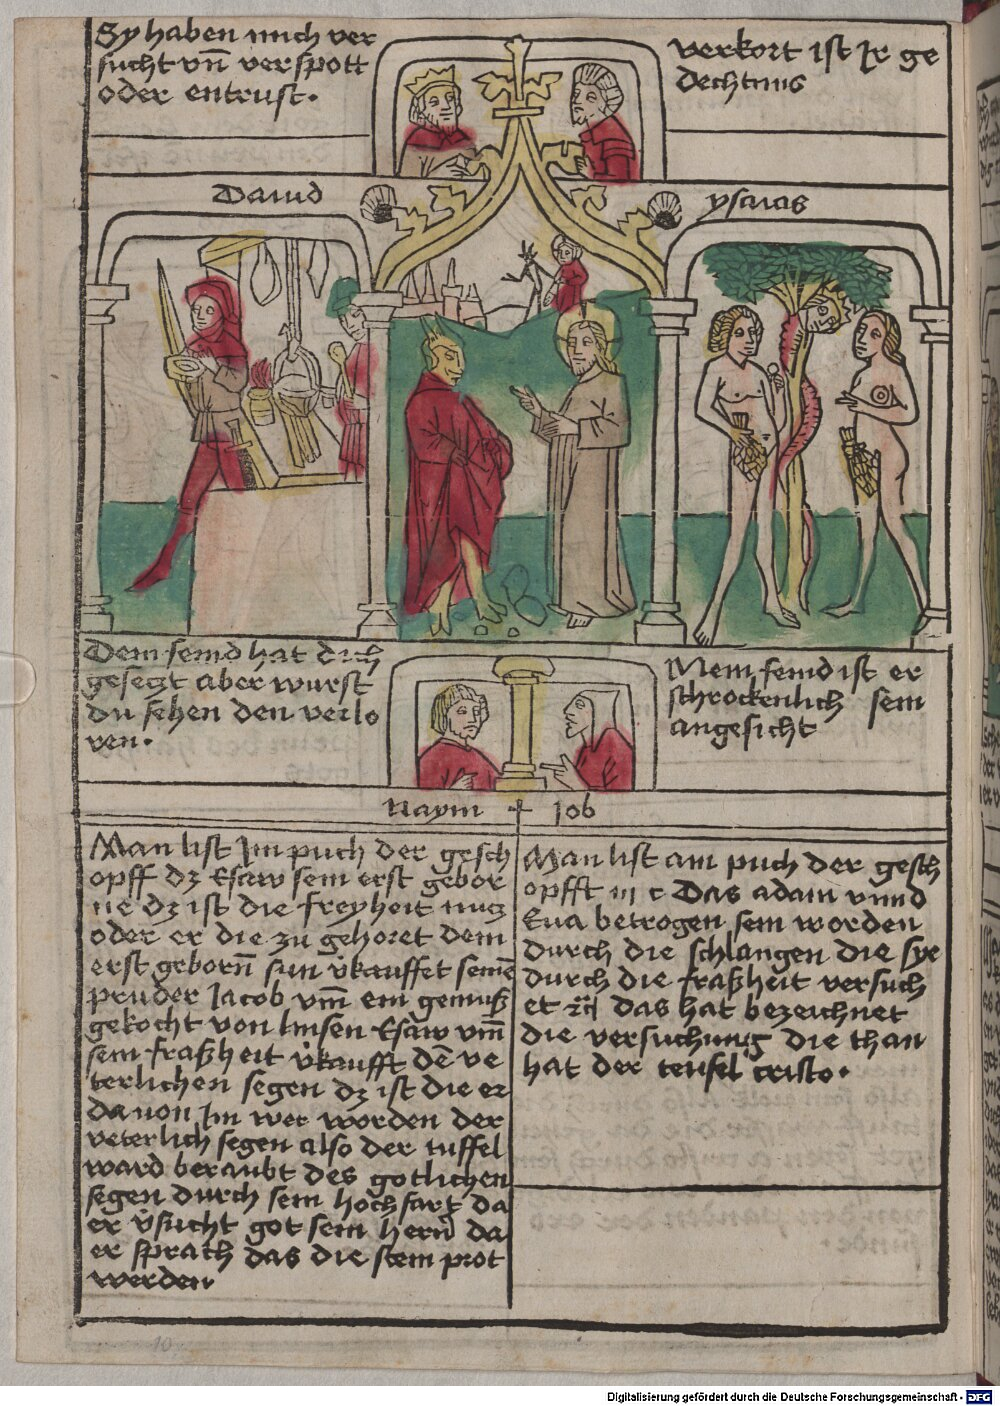 Sy haben mich ver
sucht vn̄ verspott
oder entrust.
verkort ist Ir ge
dechtnus
Dauid
ysaias
Dein feind hat dich
gesetzt aber wurst
du sehen den verlo
ren.
Mein feind ist er
schrockenlich sein
angesicht
Naym
Job
Man list Im puch der gesch
opff dz Esaw sein erst gebor
ne dz ist die freyheit nutz
oder er die zu gehoret dem
erst geborn̄ sun v̓kauffet seinē
pruder Jacob vm̄ ein gemuß
gekocht von linsen Esaw vm̄
sein fraßheit v̓kaufft dē ve
terlichen segen dz ist die er
da uon Im wer worden der
veterlich segen also der tuffel
ward beraubt des gotlichen
segen durch sein hochfart da
er v̓sucht got sein hern̄ da
er sprach das die stein prot
werden
Man list am puch der gesch
opfft iii c Das adam vnnd
Eua betrogen sein worden
durch die schlangen die sye
durch die fraßheit versuch
et das hat bezeichnet
die versuchung die than
hat der teufel cristo.
10
Digitalisierung gefördert durch die Deutsche Forschungsgemeinschaft - DFG